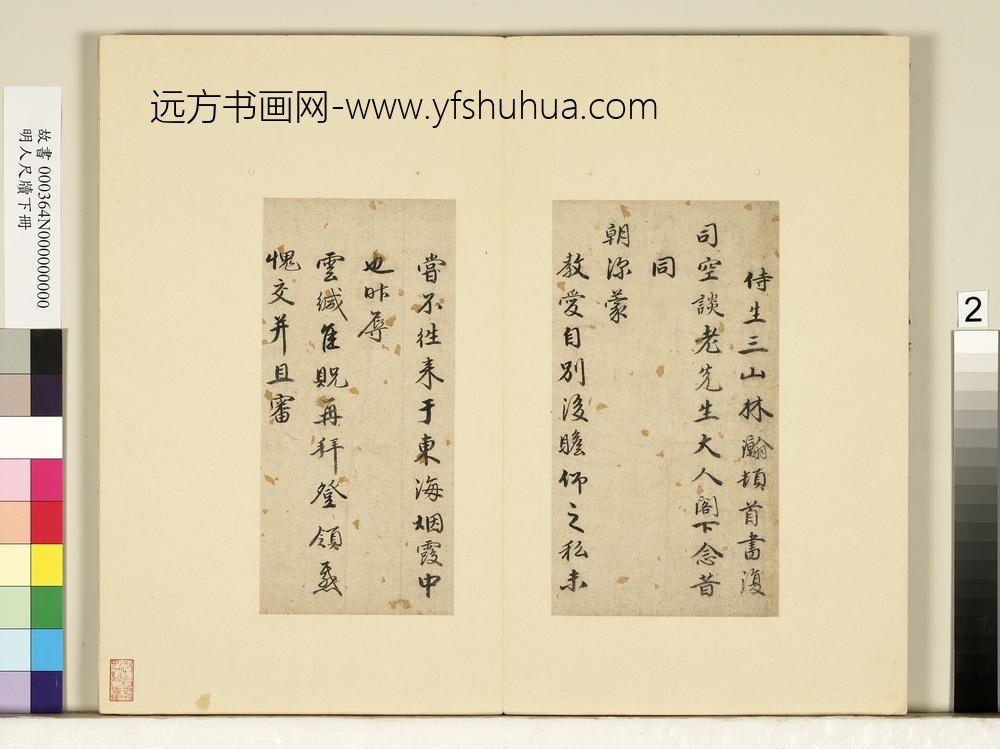 远方书画网-www.yfshuhua.com
故書 000364N000000000
明人尺牘下冊
2
侍生三山林瀚頓首書復
司空談老先生大人閣下念昔
同
朝深蒙
教愛自別後瞻仰之私未
嘗不往來于東海烟霞中
也昨辱
雲緘隹貺再拜登領感
愧交并且審